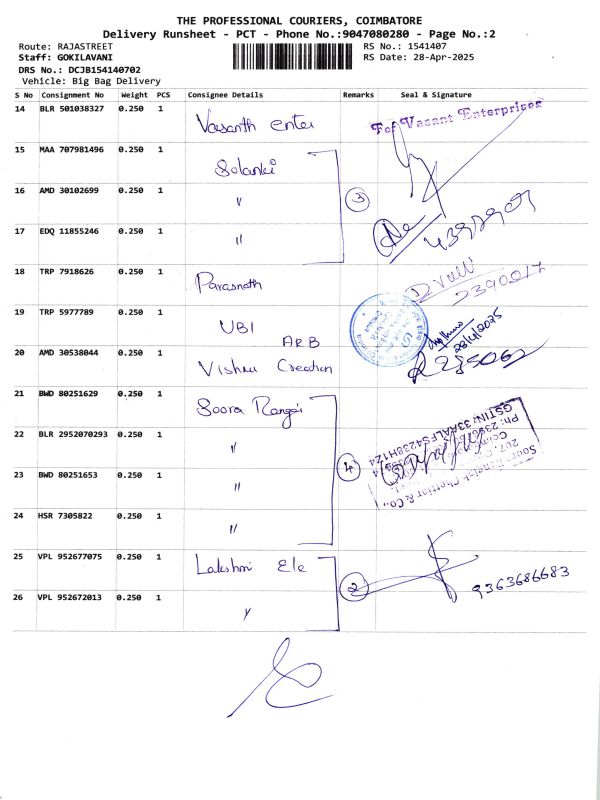 THE PROFESSIONAL COURIERS, COIMBATORE
Delivery Runsheet - PCT - Phone No.:9047080280 - Page No.:2
Route: RAJASTREET RS No.: 1541407
Staff: GOKILAVANI RS Date: 28-Apr-2025
DRS No.: DCJB154140702
Vehicle: Big Bag Delivery
S No Consignment No Weight PCS Consignee Details Remarks Seal & Signature
14 BLR 501038327 0.250 1 Vasanth Enter For Vasant Enterprises
15 MAA 707981496 0.250 1 Solanki
16 AMD 30102699 0.250 1 " 3
17 EDQ 11855246 0.250 1 "
18 TRP 7918626 0.250 1 Parasnath
19 TRP 5977789 0.250 1 UBI 28/4/2025
ARB
20 AMD 30538044 0.250 1 Vishnu Creation
21 BWD 80251629 0.250 1 Soora Rangai
22 BLR 2952070293 0.250 1 " 4
23 BWD 80251653 0.250 1 "
24 HSR 7305822 0.250 1 "
25 VPL 952677075 0.250 1 Lakshmi Ele 2 9363686683
26 VPL 952672013 0.250 1 "